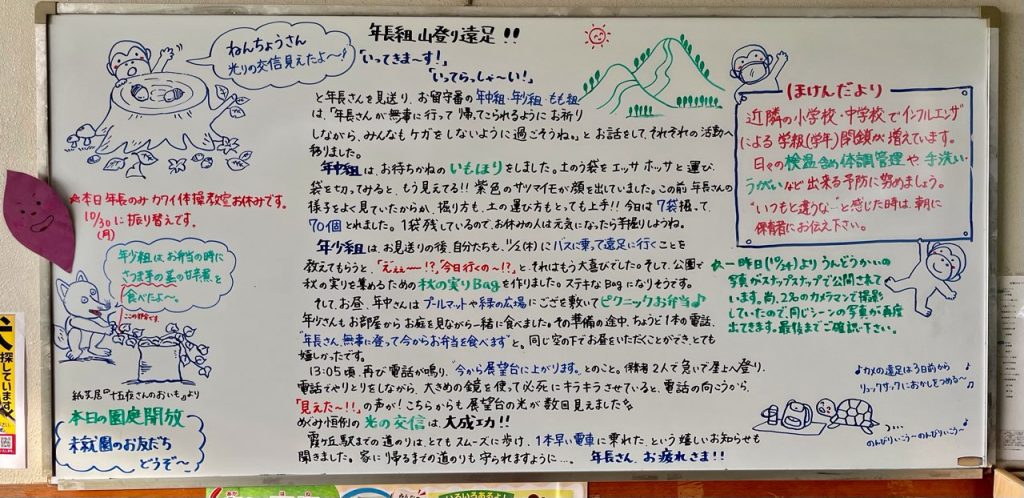 年長組 山登り遠足!!
「いってきま〜す!」
「いってらっしゃ〜い!」
と年長さんを見送り、お留守番の年中組・年少組・もも組
は、「年長さんが無事に行って帰ってこられるようにお祈り
しながら、みんなもケガをしないように過ごそうね。」とお話をして、それぞれの活動へ
移りました。
年中組は、お待ちかねのいもほりをしました。土のう袋をエッサホッサと運び、
袋を切ってみると、もう見えてる!!紫色のサツマイモが顔を出していました。この前年長さんの
様子をよく見ていたからか、掘り方も、土の運び方もとても上手!!今日は7袋掘って、
70個とれました。1袋残しているので、お休みの人は元気になったら芋掘りしようね。
年少組は、お見送りの後、自分たちも、11/2(木)にバスに乗って遠足に行くことを
教えてもらうと、「えぇぇ〜!?」「今日行くの〜!?」と、それはもう大喜びでした。そして、公園で
秋の実りを集めるための秋の実りBagを作りました。ステキなBagになりそうです。
そして、お昼、年中さんはプールマットや緑の広場にござを敷いてピクニックお弁当♪
年少さんもお部屋からお庭を見ながら一緒に食べました。その準備の途中、ちょうど1本の電話、
"年長さん、無事に登って今からお弁当を食べます"と。同じ空の下でお昼をいただくことができ、とても
嬉しかったです。
13:05頃、再び電話が鳴り、"今から展望台に上がります。"とのこと。保育者2人で急いで屋上へ登り、
電話でやりとりをしながら、大きめの鏡を使って必死にキラキラさせていると、電話の向こうから、
「見えた〜!!」の声が!こちらからも展望台の光が数回見えました
めぐみ恒例の光の交信は、大成功!!
霞ヶ丘駅までの道のりは、とてもスムーズに歩け、1本早い電車に乗れた、という嬉しいお知らせも
聞きました。家に帰るまでの道のりも守られますように…。 年長さん、お疲れさま!!
ねんちょうさん
光りの交信見えたよ〜!
☆本日年長のみカワイ体操教室お休みです。
10/30(月)に振り替えです。
年少組は、お弁当の時に
さつま芋の茎の甘煮を
食べたよ〜。
紙芝居『十五夜さんのおいも』より
本日の園庭開放
未就園のお友だち
どうぞ〜
ほけんだより
近隣の小学校・中学校でインフルエンザ
による学級(学年)閉鎖が増えています。
日々の検温含め体調管理や手洗い・
うがいなど出来る予防に努めましょう。
"いつもと違うな…"と感じた時は、朝に
保育者にお伝え下さい。
☆一昨日(10/24)よりうんどうかいの
写真がスナップスナップで公開されて
います。尚、2名のカメラマンで撮影
していたので、同じシーンの写真が再度
出てきます。最後までご確認下さい。
♪カメの遠足は3日前から
リュックサックにおかしをつめる〜♪
♪のんびりいこう〜のんびりいこう〜♪
探しています